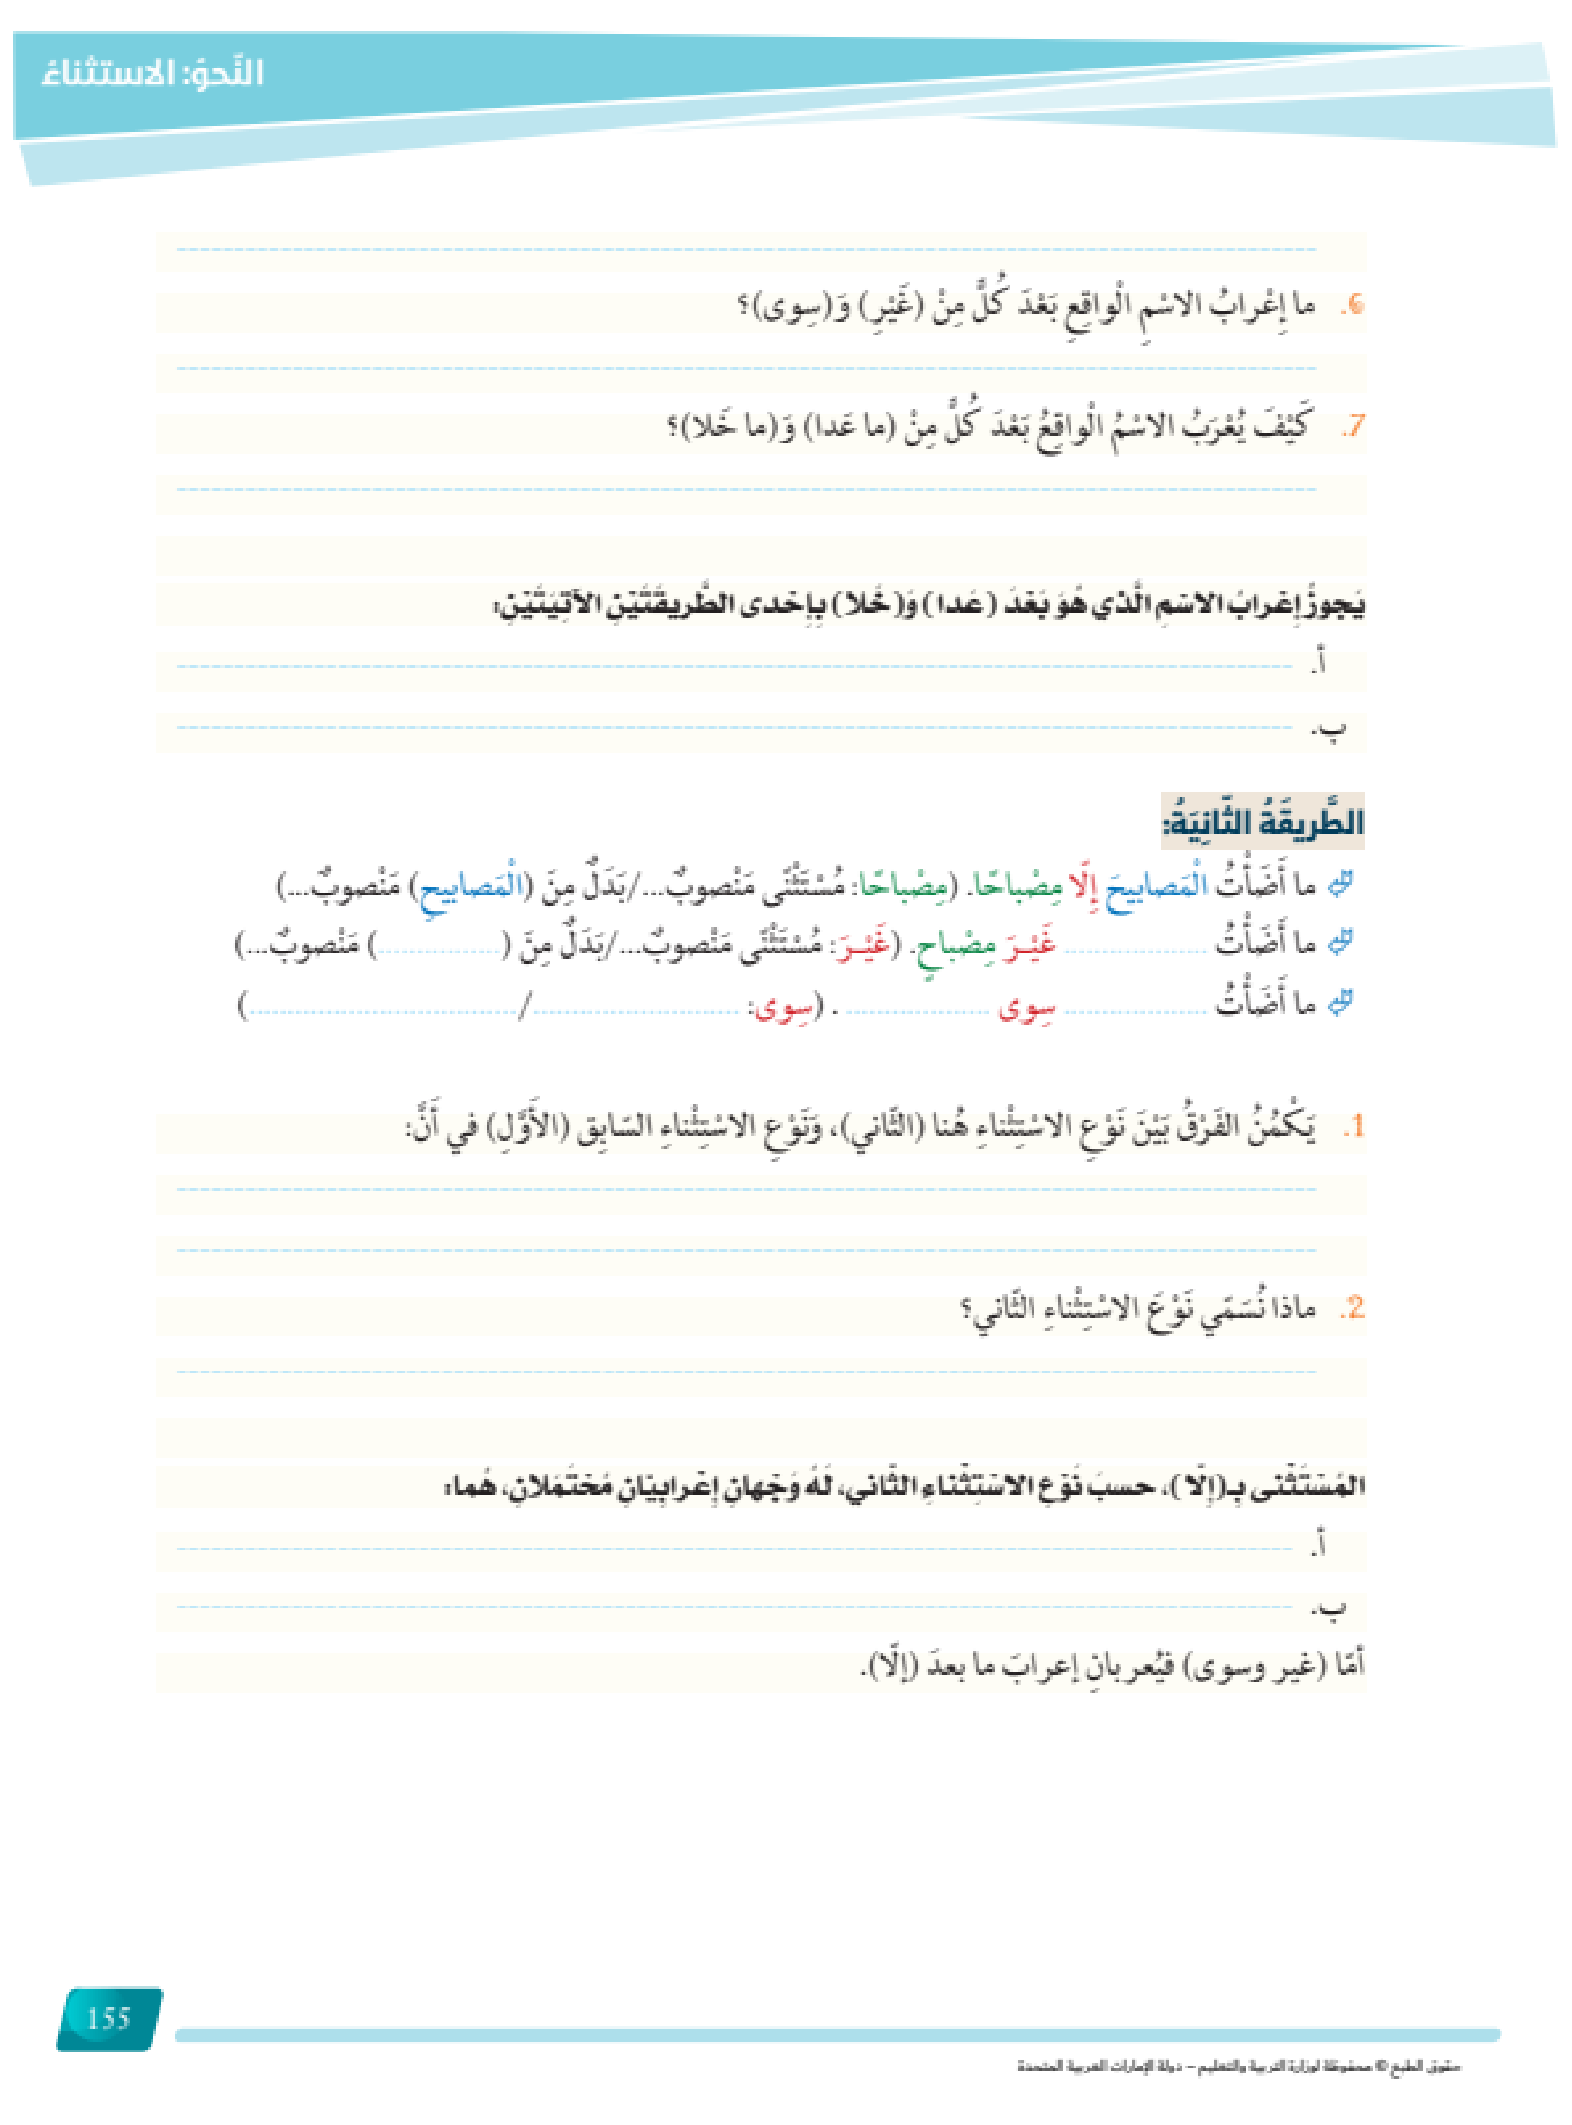 النَّحوُ: الاستثناءُ
6. ما إِعْرابُ الاسْمِ الْواقِعِ بَعْدَ كُلٍّ مِنْ (غَيْرِ) وَ(سِوى)؟
7. كَيْفَ يُعْرَبُ الاسْمُ الْواقِعُ بَعْدَ كُلٍّ مِنْ (ما عَدا) وَ(ما خَلا)؟
يَجوزُ إِعْرابُ الاسْمِ الَّذي هُوَ بَعْدَ (عَدا) وَ(خَلا) بِإِحْدى الطَّريقَتَيْنِ الآتِيَتَيْنِ:
أ.
ب.
الطَّريقَةُ الثّانِيَةُ:
ما أَضَأْتُ الْمَصابيحَ إِلّا مِصْباحًا. (مِصْباحًا: مُسْتَثْنًى مَنْصوبٌ.../بَدَلٌ مِنَ (الْمَصابيحِ) مَنْصوبٌ...)
ما أَضَأْتُ ........ غَيْـرَ مِصْباحٍ. (غَيْـرَ: مُسْتَثْنًى مَنْصوبٌ.../بَدَلٌ مِنَ (........) مَنْصوبٌ...)
ما أَضَأْتُ ........ سِوى ........ . (سِوى: ......../........)
1. يَكْمُنُ الفَرْقُ بَيْنَ نَوْعِ الاسْتِثْناءِ هُنا (الثّاني)، وَنَوْعِ الاسْتِثْناءِ السّابِقِ (الأَوَّلِ) في أَنَّ:
2. ماذا نُسَمّي نَوْعَ الاسْتِثْناءِ الثّاني؟
المُسْتَثْنى بِـ(إِلّا)، حسبَ نَوْعِ الاسْتِثْناءِ الثّاني، لَهُ وَجْهانِ إِعْرابِيّانِ مُحْتَمَلانِ، هُما:
أ.
ب.
أمّا (غير وسوى) فيُعربانِ إعرابَ ما بعدَ (إلّا).
155
حقوق الطبع © محفوظة لوزارة التربية والتعليم – دولة الإمارات العربية المتحدة